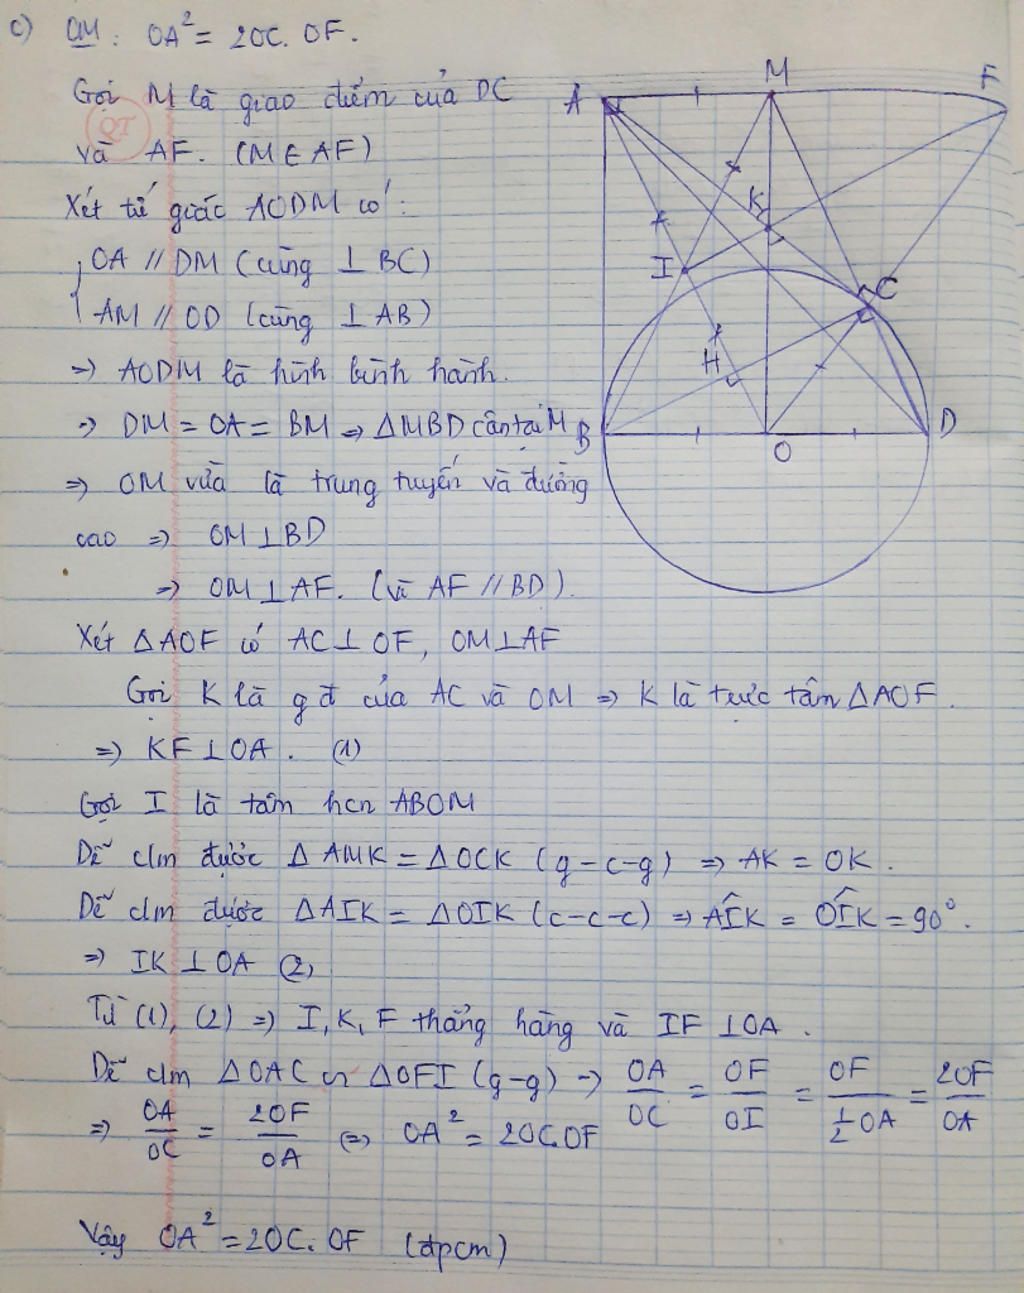 c) CM: OA² = 2OC. OF.
Gọi M là giao điểm của DC
QT
và AF. (M ∈ AF)
Xét tứ giác AODM có:
OA // DM (cùng ⊥ BC)
AM // OD (cùng ⊥ AB)
=> AODM là hình bình hành.
=> DM = OA = BM => ΔMBD cân tại M
=> OM vừa là trung tuyến và đường
cao => OM ⊥ BD
=> OM ⊥ AF. (vì AF // BD).
Xét ΔAOF có AC ⊥ OF, OM ⊥ AF
Gọi K là gđ của AC và OM => K là trực tâm ΔAOF.
=> KF ⊥ OA. (1)
Gọi I là tâm hcn ABOM
Dễ clm được ΔAMK = ΔOCK (g-c-g) => AK = OK.
Dễ clm được ΔAIK = ΔOIK (c-c-c) => AÎK = OÎK = 90°.
=> IK ⊥ OA (2)
Từ (1), (2) => I, K, F thẳng hàng và IF ⊥ OA.
Dễ clm ΔOAC ∽ ΔOFI (g-g) => OA/OC = OF/OI = OF/(1/2 OA) = 2OF/OA
=> OA/OC = 2OF/OA (=) OA² = 2OC.OF
Vậy OA² = 2OC. OF (đpcm)
A
M
F
K
I
C
H
B
O
D